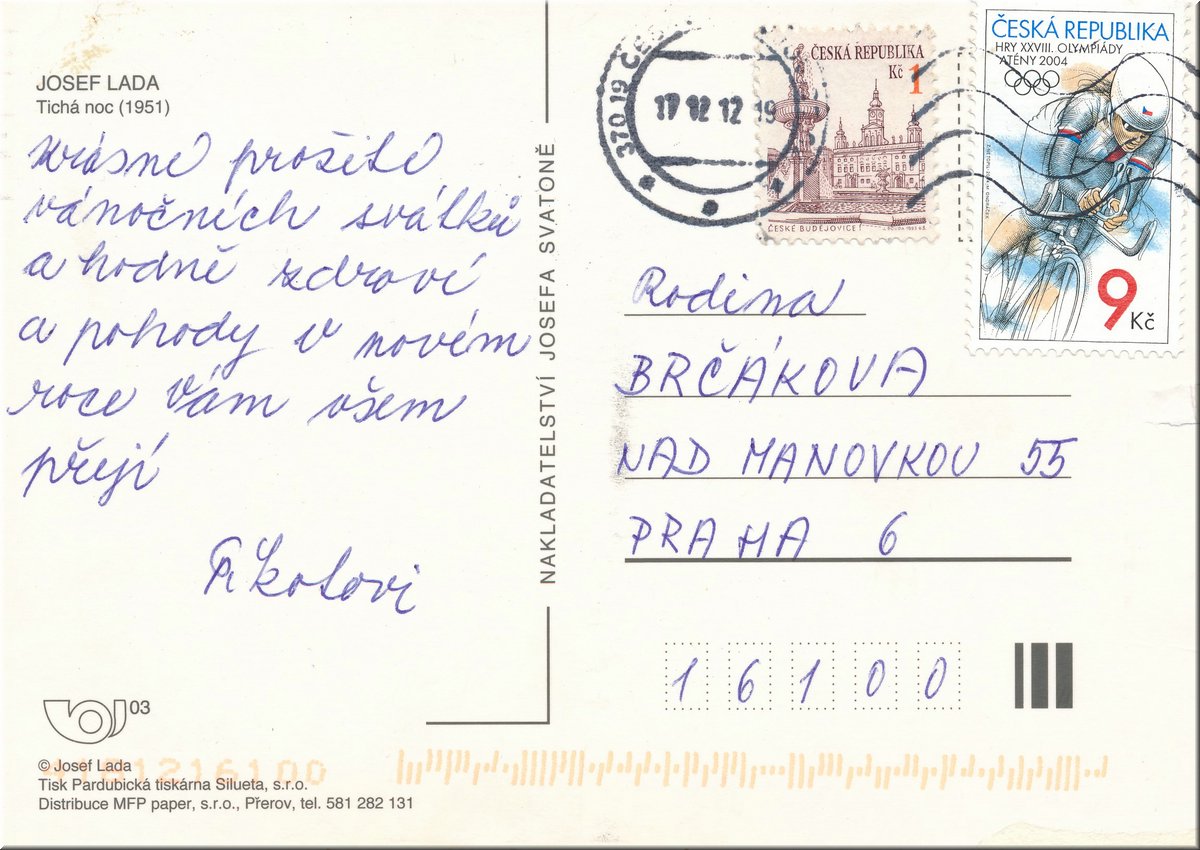 JOSEF LADA
Tichá noc (1951)
Krásné prožití
vánočních svátků
a hodně zdraví
a pohody v novém
roce Vám všem
přejí
03
© Josef Lada
Tisk Pardubická tiskárna Silueta, s.r.o.
Distribuce MFP paper, s.r.o., Přerov, tel. 581 282 131
NAKLADATELSTVÍ JOSEFA SVATONĚ
370 19 ČES
17 12 12 19
ČESKÁ REPUBLIKA
Kč 1
ČESKÉ BUDĚJOVICE
ČESKÁ REPUBLIKA
HRY XXVIII. OLYMPIÁDY
ATÉNY 2004
9 Kč
Rodina
BRČÁKOVA
NAD MANOVKOU 55
PRAHA 6
16100